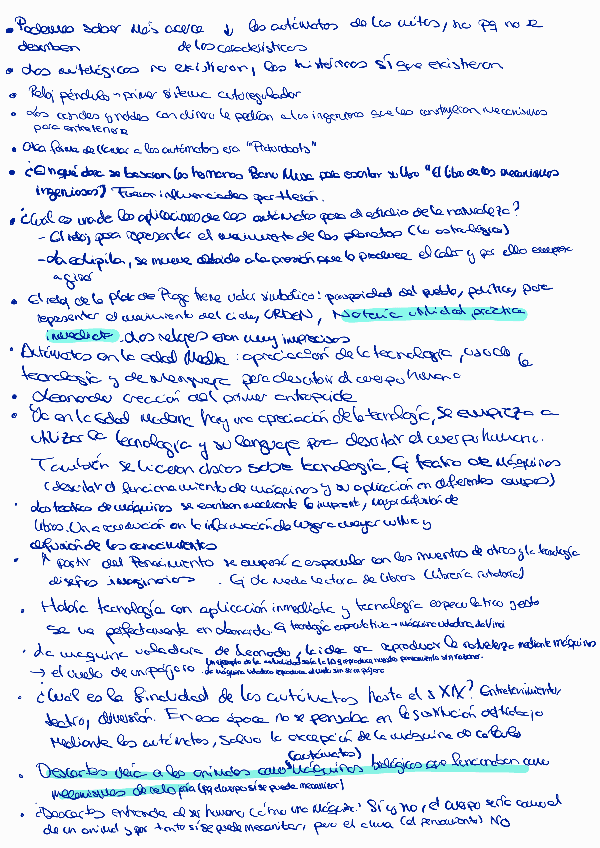 • Podemos saber más acerca ↓ los autómatas de los mitos, no pq no se
describen de las características
• Los mitológicos no existieron, los históricos sí que existieron
• Reloj péndulo → primer sistema autorregulador
• Los condes y nobles con dinero le pedían a los ingenieros que les construyeran mecanismos
para entretenerse
• Otra forma de llamar a los autómatas era "
• ¿En qué se basaron los hermanos Banu Musa para escribir su libro "El libro de los mecanismos
ingeniosos"? Fueron influenciados por Herón.
• ¿Cuál es una de las aplicaciones de los autómatas para el estudio de la naturaleza?
- El reloj para representar el movimiento de los planetas (lo astrológico)
- La eolipila, se mueve debido a la presión que lo produce el calor y por ello empieza
a girar
• El reloj de la plaza de Praga tiene valor simbólico: prosperidad del pueblo, política, para
representar el movimiento del cielo, ORDEN, No tenía utilidad práctica
inmediata. Los relojes eran muy imprecisos
• Autómatas en la Edad Media: apreciación de la tecnología, uso de la
tecnología y de su lenguaje para describir el cuerpo humano
• Leonardo creación del primer antropoide
• Ya en la Edad Moderna hay una apreciación de la tecnología, se empieza a
utilizar la tecnología y su lenguaje para describir el cuerpo humano.
También se hicieron libros sobre tecnología. Ej teatro de máquinas
(describir el funcionamiento de máquinas y su aplicación en diferentes campos)
• Los teatros de máquinas se escriben mediante la imprenta, mayor difusión de
libros. Una revolución en la información da lugar a mayor cultura y
difusión de los conocimientos
• A partir del Renacimiento se empezó a especular con los inventos de otros y la tecnología
diseños imaginarios. Ej de rueda lectora de libros (librería rotatoria)
• Había tecnología con aplicación inmediata y tecnología especulativa y esto
se ve perfectamente en Leonardo. Ej tecnología especulativa → máquina voladora de Vinci
• La máquina voladora de Leonardo, la idea era reproducir la naturaleza mediante máquinas
→ el vuelo de un pájaro. Un ejemplo de la actualidad sería la IA q reproduce nuestro pensamiento sin razonar.
La máquina voladora reproduce el vuelo sin ser un pájaro
• ¿Cuál es la finalidad de los autómatas hasta el s XIX? Entretenimiento,
teatro, diversión. En esa época no se pensaba en la sustitución del trabajo
mediante los autómatas, salvo la excepción de la máquina de cálculo
(autómatas)
• Descartes veía a los animales como máquinas biológicas que funcionaban como
mecanismos de relojería (pq el cuerpo sí se puede mecanizar)
• ¿Descartes entiende al ser humano como una máquina? Sí y no, el cuerpo sería como el
de un animal y por tanto sí se puede mecanizar, pero el alma (el pensamiento) NO